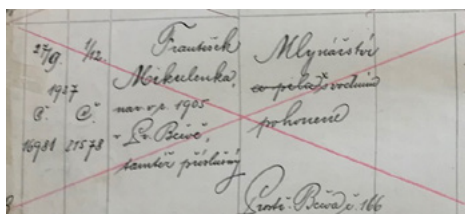 27/9. 1/12.
1927
Č. Č.
16981 21578
František
Mikulenka,
nar. v r. 1905
v Pr. Bečvě,
tamtéž příslušný
Mlynářství
a pila s vodním
pohonem
Prostř. Bečva č. 166